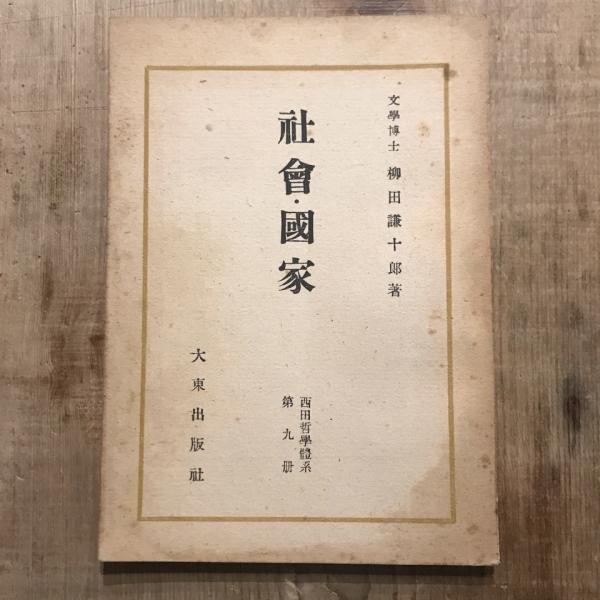 文學博士 柳田謙十郎著
社會・國家
西田哲學體系
第九册
大東出版社